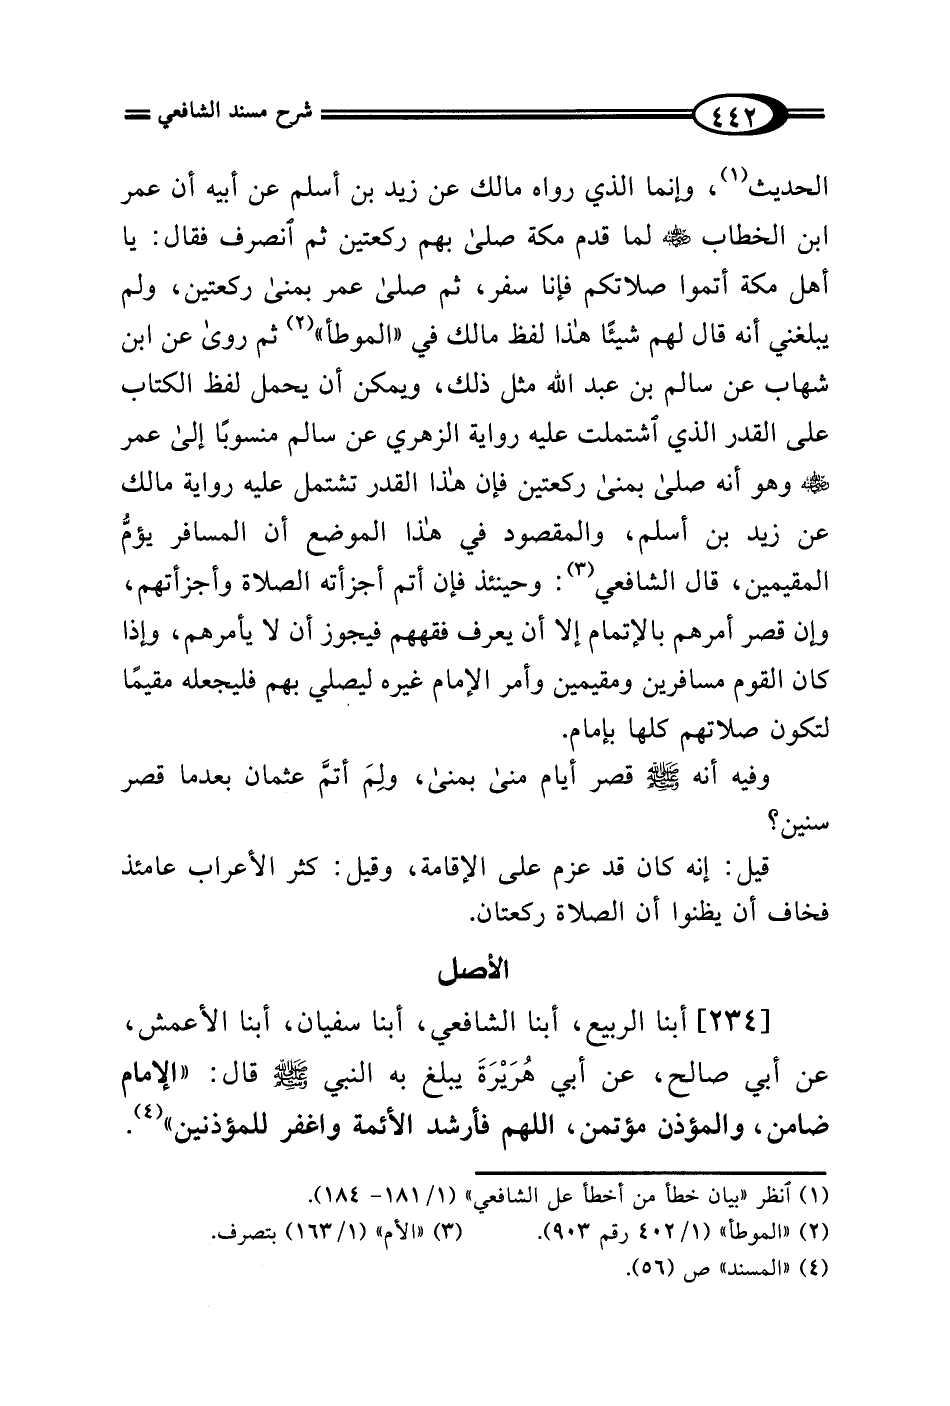 ٤٤٢ شرح مسند الشافعي
الحديث(١)، وإنما الذي رواه مالك عن زيد بن أسلم عن أبيه أن عمر
ابن الخطاب ﵁ لما قدم مكة صلىٰ بهم ركعتين ثم ٱنصرف فقال: يا
أهل مكة أتموا صلاتكم فإنا سفر، ثم صلىٰ عمر بمنىٰ ركعتين، ولم
يبلغني أنه قال لهم شيئًا هٰذا لفظ مالك في «الموطأ»(٢) ثم روىٰ عن ابن
شهاب عن سالم بن عبد الله مثل ذلك، ويمكن أن يحمل لفظ الكتاب
على القدر الذي ٱشتملت عليه رواية الزهري عن سالم منسوبًا إلىٰ عمر
﵁ وهو أنه صلىٰ بمنىٰ ركعتين فإن هٰذا القدر تشتمل عليه رواية مالك
عن زيد بن أسلم، والمقصود في هٰذا الموضع أن المسافر يؤمُّ
المقيمين، قال الشافعي(٣): وحينئذ فإن أتم أجزأته الصلاة وأجزأتهم،
وإن قصر أمرهم بالإتمام إلا أن يعرف فقههم فيجوز أن لا يأمرهم، وإذا
كان القوم مسافرين ومقيمين وأمر الإمام غيره ليصلي بهم فليجعله مقيمًا
لتكون صلاتهم كلها بإمام.
وفيه أنه ﷺ قصر أيام منىٰ بمنىٰ، ولِمَ أتمَّ عثمان بعدما قصر
سنين؟
قيل: إنه كان قد عزم على الإقامة، وقيل: كثر الأعراب عامئذ
فخاف أن يظنوا أن الصلاة ركعتان.
الأصل
[٢٣٤] أبنا الربيع، أبنا الشافعي، أبنا سفيان، أبنا الأعمش،
عن أبي صالح، عن أبي هُرَيْرَةَ يبلغ به النبي ﷺ قال: «الإمام
ضامن، والمؤذن مؤتمن، اللهم فأرشد الأئمة واغفر للمؤذنين»(٤).
(١) ٱنظر «بيان خطأ من أخطأ عل الشافعي» (١/ ١٨١- ١٨٤).
(٢) «الموطأ» (١/ ٤٠٢ رقم ٩٠٣). (٣) «الأم» (١/ ١٦٣) بتصرف.
(٤) «المسند» ص (٥٦).